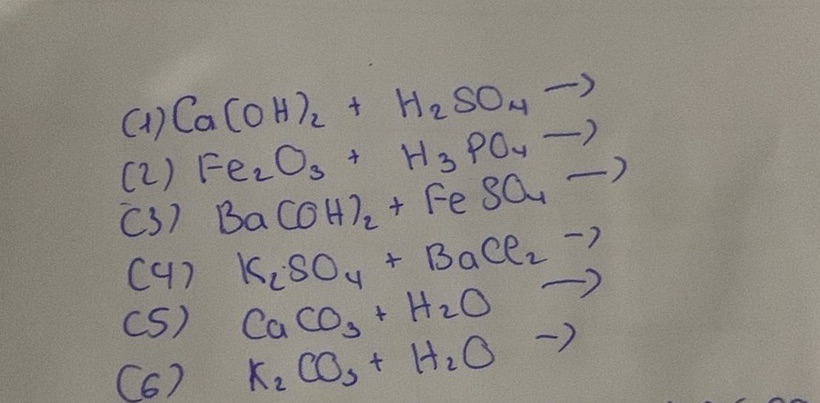 (1) Ca(OH)₂ + H₂SO₄ →
(2) Fe₂O₃ + H₃PO₄ →
(3) Ba(OH)₂ + FeSO₄ →
(4) K₂SO₄ + BaCl₂ →
(5) CaCO₃ + H₂O →
(6) K₂CO₃ + H₂O →